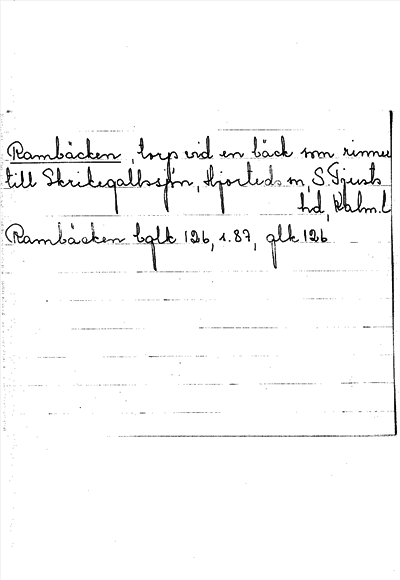 Rambäcken, torp vid en bäck som rinner
till Skrikegallssjön, Hjorteds sn, S. Tjusts
hd, Kalm. l
Rambäcken bglk 126, s. 87, glk 126